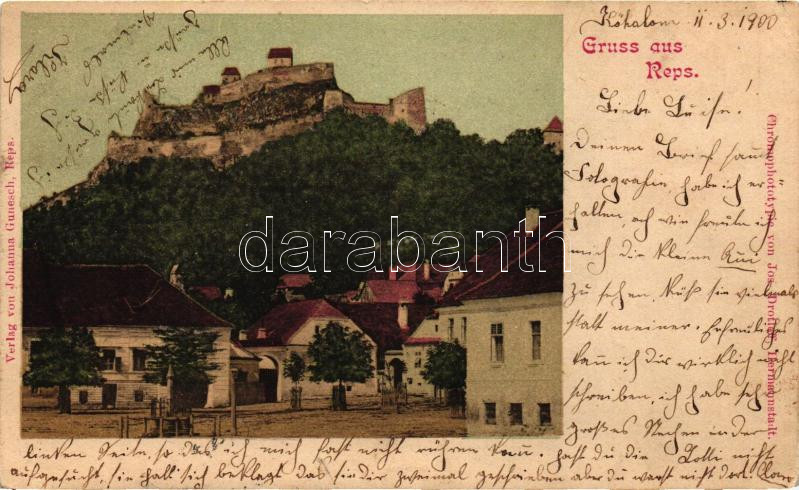 Kőhalom 11.3.1900
Gruss aus
Reps.
Liebe Luise!
Deinen Brief samt
Fotografie habe ich er
halten, ach wie freute ich
mich die kleine
zu sehen. Küß sie vielmals
statt meiner. Erfreuliches
kann ich dir wirklich nicht
schreiben, ich habe sehr
großes Stechen in der
linken Seite, so das ich mich fast nicht rühren kann. Hast du die Lotti nicht
aufgesucht, sie hatt sich beklagt das sie dir zweimal geschrieben aber du warst nicht dort.
Alle und
Klara
Verlag von Johanna Gunesch, Reps.
Chromophototypie von Jos. Drotleff, Hermannstadt.
darabanth